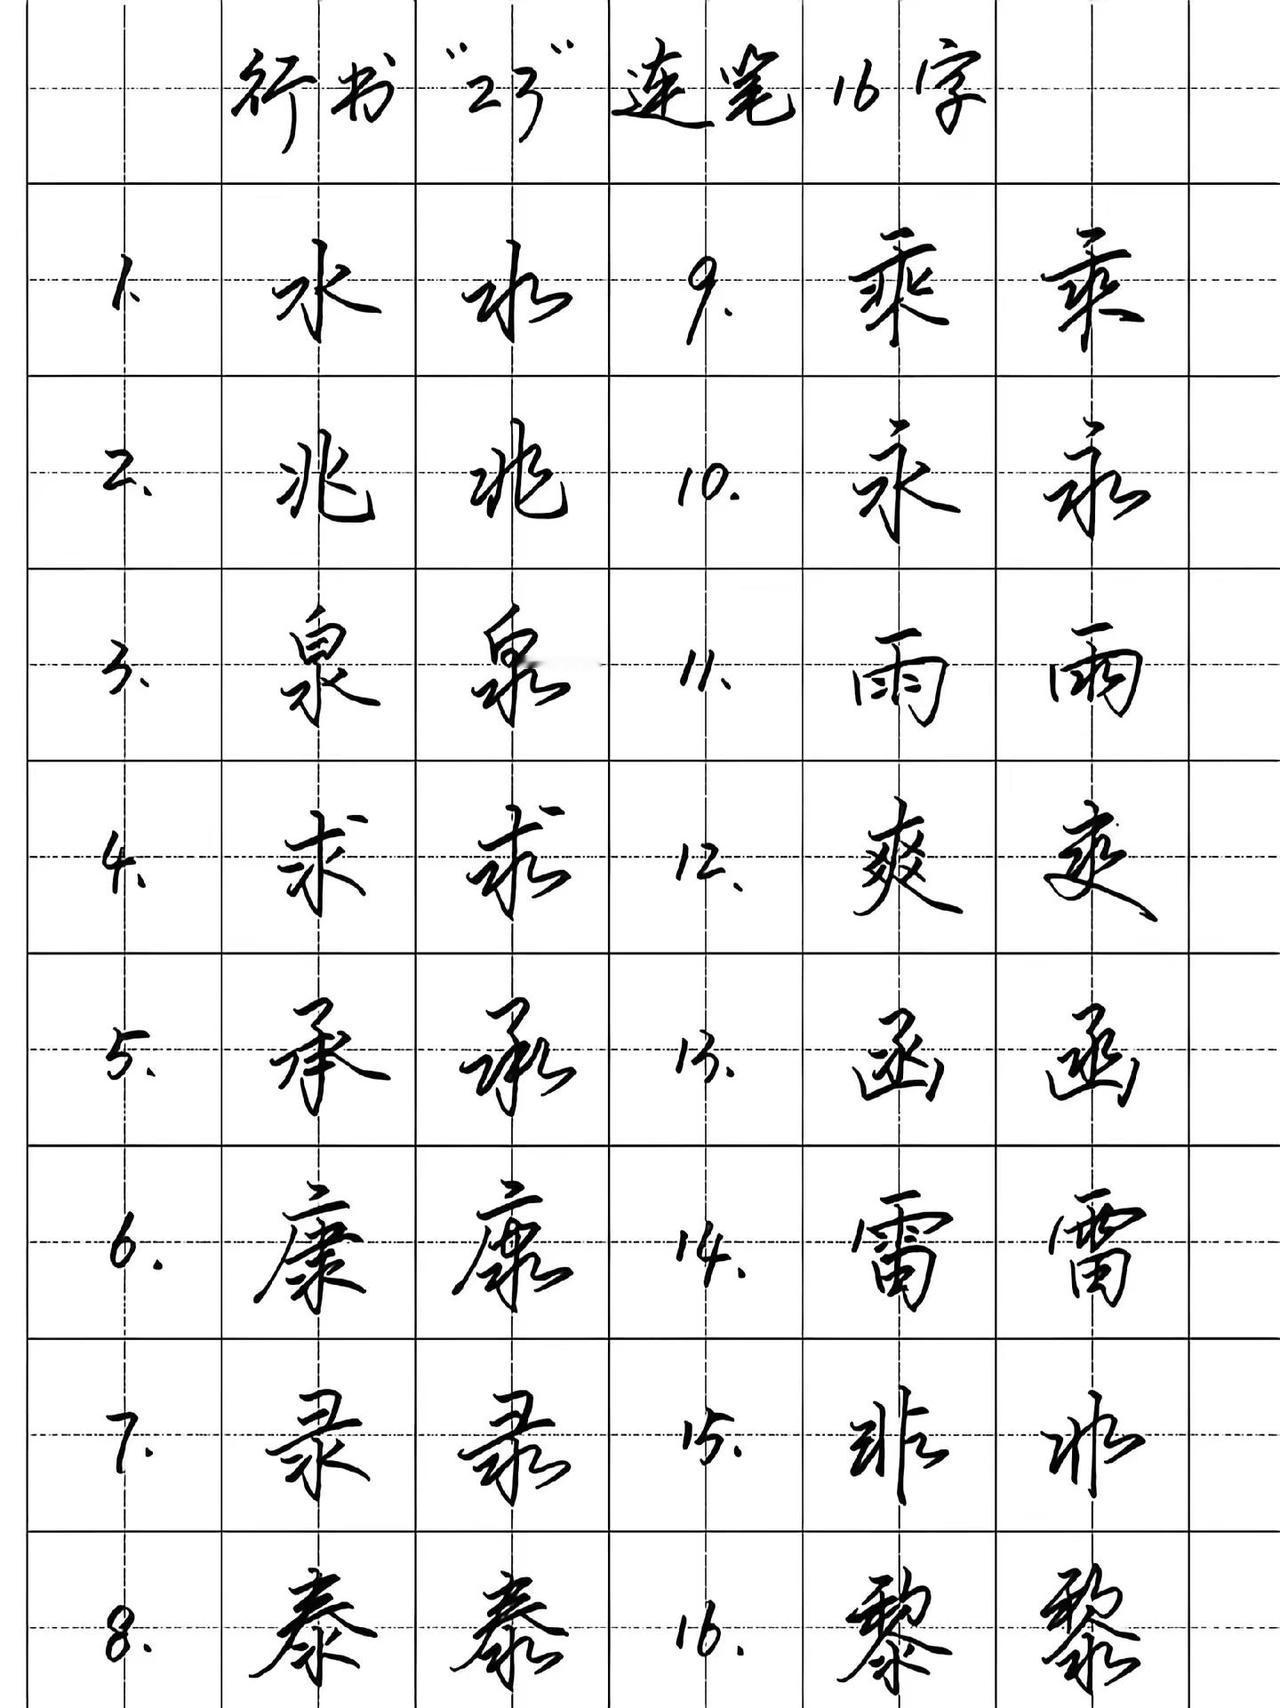 行书“23”连笔16字
1. 水 水 9. 乘 乘
2. 兆 兆 10. 永 永
3. 泉 泉 11. 雨 雨
4. 求 求 12. 爽 爽
5. 承 承 13. 函 函
6. 康 康 14. 雷 雷
7. 录 录 15. 非 非
8. 泰 泰 16. 黎 黎